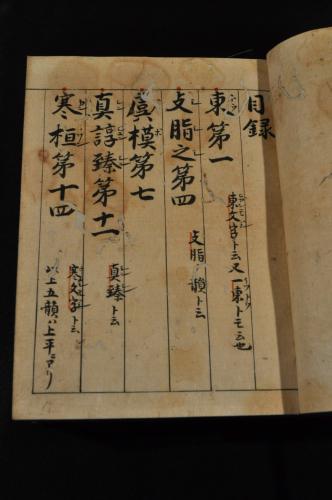 目録
東第一
東文字トモ云又一東トモ云也
支脂之第四
支脂ノ韻ト云
虞模第七
真諄臻第十一
真臻ト云
寒桓第十四
寒文字ト云
以上五韻ハ上平ニアリ